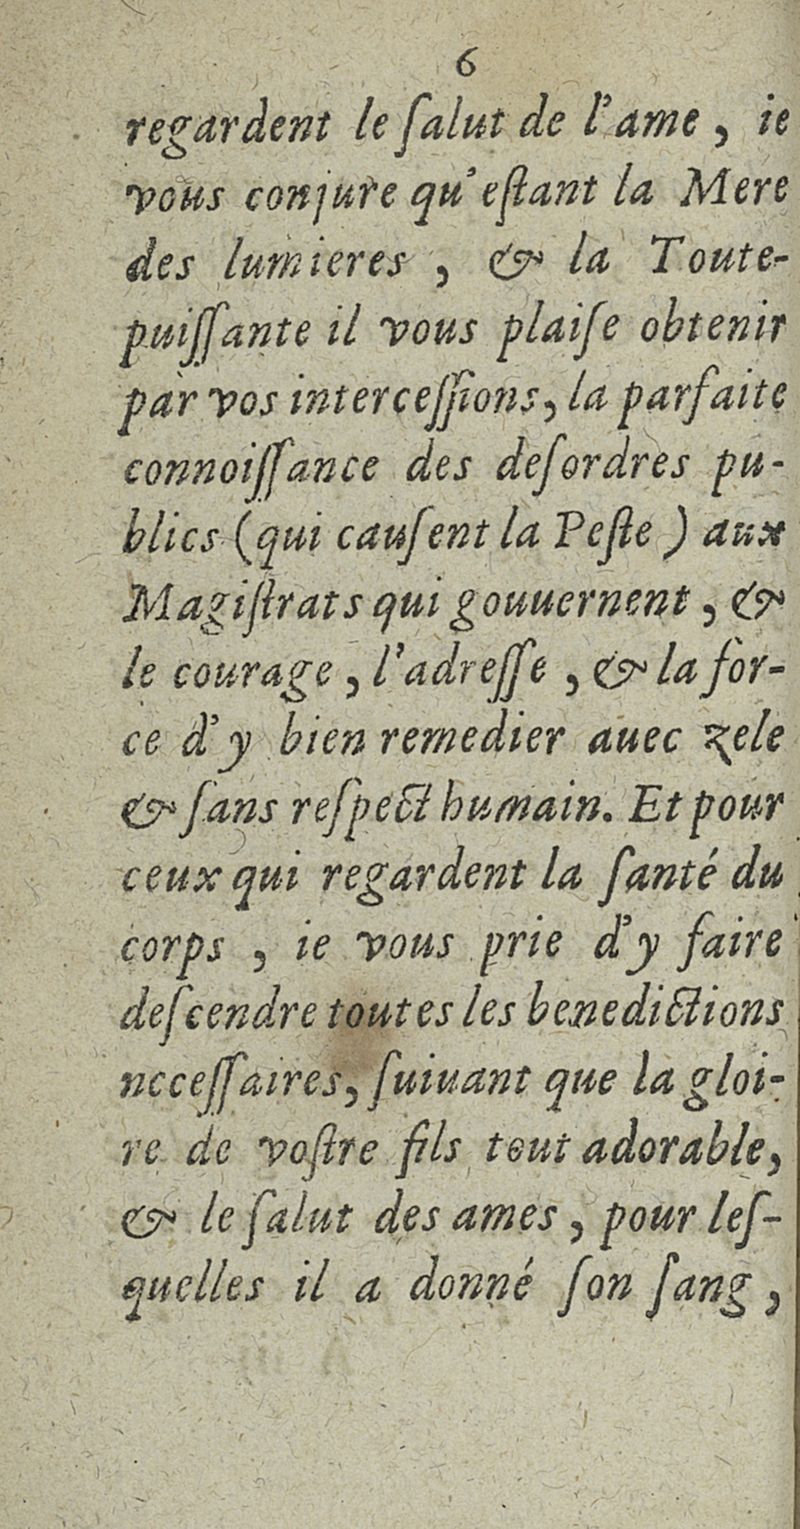 6
regardent le ſalut de l'ame, ie
vous conjure qu'eſtant la Mere
des lumieres, & la Toute-
puiſſante il vous plaiſe obtenir
par vos interceſſions, la parfaite
connoiſſance des deſordres pu-
blics (qui cauſent la Peſte) aux
Magiſtrats qui gouuernent, &
le courage, l'adreſſe, & la for-
ce d'y bien remedier auec zele
& ſans reſpect humain. Et pour
ceux qui regardent la ſanté du
corps, ie vous prie d'y faire
deſcendre toutes les benedictions
neceſſaires, ſuiuant que la gloi-
re de voſtre fils tout adorable,
& le ſalut des ames, pour leſ-
quelles il a donné ſon ſang,